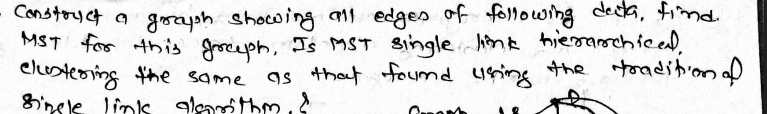 Construct a graph showing all edges of following data, find
MST for this graph, Is MST single link hierarchical
clustering the same as that found using the traditional
single link algorithm.?